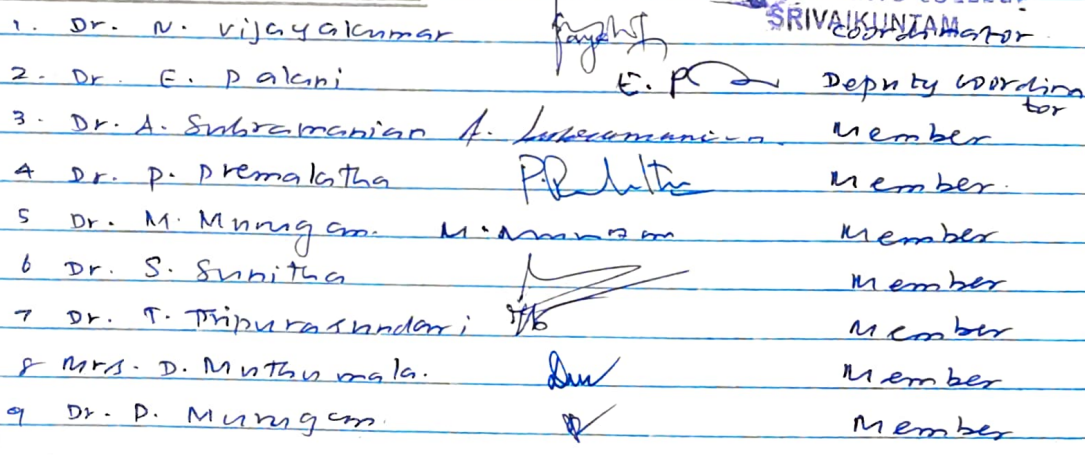 SRIVAIKUNTAM
1. Dr. N. Vijayakumar Coordinator
2. Dr. E. Palani E. P Deputy Coordinator
3. Dr. A. Subramanian A. Subramanian Member
4 Dr. P. Premalatha Member.
5 Dr. M. Murugan. M. Murugan Member
6 Dr. S. Sunitha Member
7 Dr. T. Tripurasundari Member
8 Mrs. D. Muthumala. Member
9 Dr. P. Murugan. Member